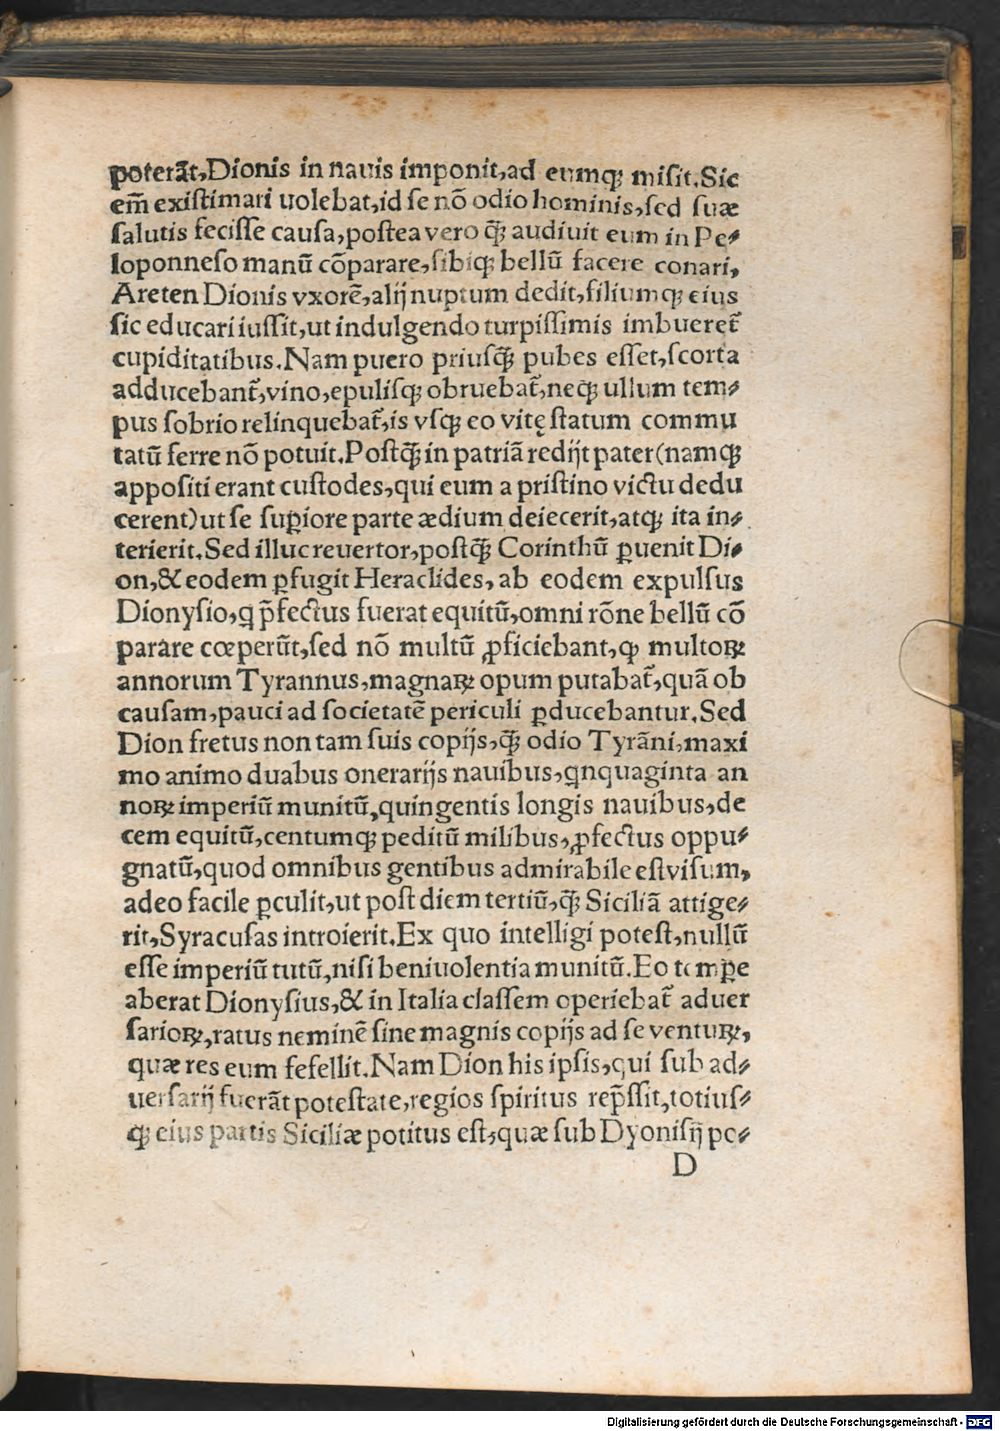 poterāt,Dionis in nauis imponit,ad eumqꝫ misit.Sic
em̄ existimari uolebat,id se nō odio hominis,sed suæ
salutis fecisse causa,postea vero q̄ꝫ audiuit eum in Pe⸗
loponneso manū cōparare,sibiqꝫ bellū facere conari,
Areten Dionis vxorē,alij nuptum dedit,filiumqꝫ eius
sic educari iussit,ut indulgendo turpissimis imbueret̄
cupiditatibus.Nam puero priusq̄ꝫ pubes esset,scorta
adducebant̄,vino,epulisqꝫ obruebat̄,neqꝫ ullum tem⸗
pus sobrio relinquebat̄,is vsqꝫ eo vitę statum commu
tatū ferre nō potuit.Postq̄ꝫ in patriā redijt pater(namqꝫ
appositi erant custodes,qui eum a pristino victu dedu
cerent)ut se suꝑiore parte ædium deiecerit,atqꝫ ita in⸗
terierit.Sed illuc reuertor,postq̄ꝫ Corinthū ꝑuenit Di⸗
on,&eodem ꝑfugit Heraclides,ab eodem expulsus
Dionysio,q p̄fectus fuerat equitū,omni rōne bellū cō
parare cœperūt,sed nō multū ꝓficiebant,ꝙ multoꝝ
annorum Tyrannus,magnaꝝ opum putabat̄,quā ob
causam,pauci ad societatē periculi ꝑducebantur.Sed
Dion fretus non tam suis copijs,q̄ꝫ odio Tyrāni,maxi
mo animo duabus onerarijs nauibus,qnquaginta an
noꝝ imperiū munitū,quingentis longis nauibus,de
cem equitū,centumqꝫ peditū milibus,ꝓfectus oppu⸗
gnatū,quod omnibus gentibus admirabile est visum,
adeo facile ꝑculit,ut post diem tertiū,q̄ꝫ Siciliā attige⸗
rit,Syracusas introierit.Ex quo intelligi potest,nullū
esse imperiū tutū,nisi beniuolentia munitū.Eo temꝑe
aberat Dionysius,& in Italia classem operiebat̄ aduer
sarioꝝ,ratus neminē sine magnis copijs ad se ventuꝝ,
quæ res eum fefellit.Nam Dion his ipsis,qui sub ad⸗
uersarij fuerāt potestate,regios spiritus rep̄ssit,totius⸗
qꝫ eius partis Siciliæ potitus est,quæ sub Dyonisij po⸗
D
Digitalisierung gefördert durch die Deutsche Forschungsgemeinschaft - DFG